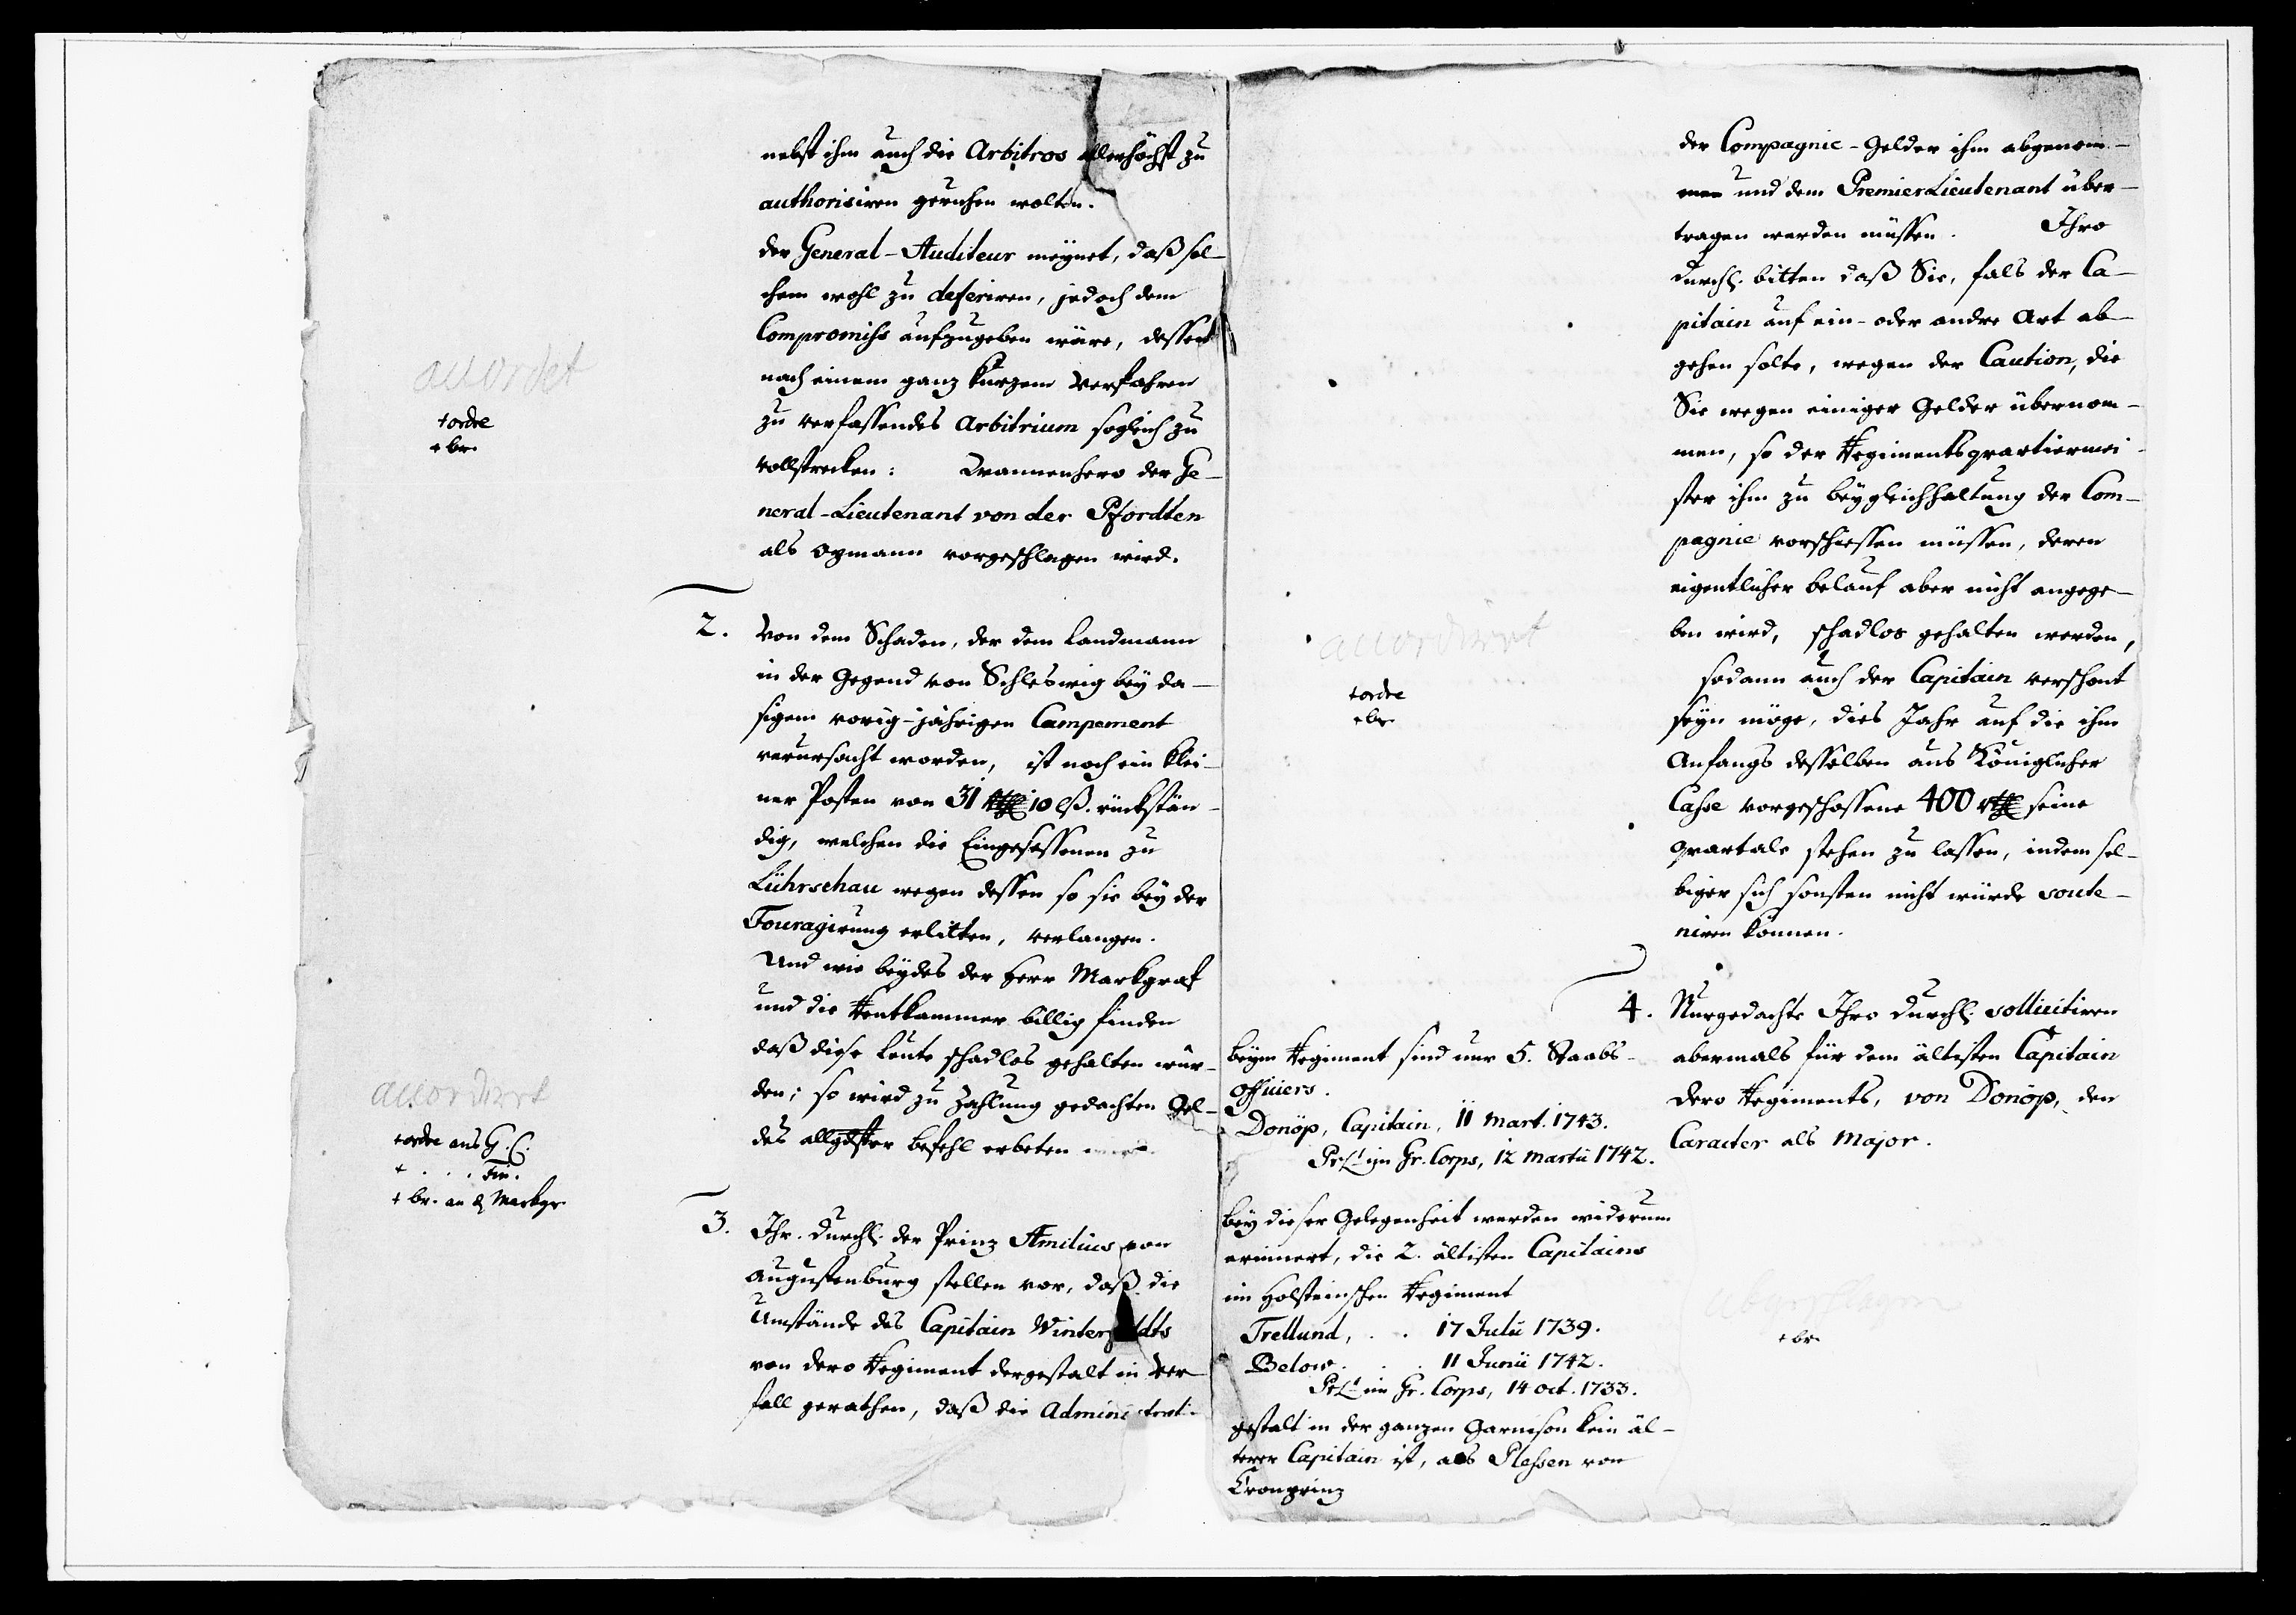 nebst ihm auch die Arbitros allerhöchst zu
authorisiren geruhen wolten.
der General-Auditeur meynet, daß sol-
chem wohl zu deferiren, jedoch dem
Compromiss aufzugeben wäre, dessen
nach einem ganz kurzem Verfahren
zu verfassendes Arbitrium sogleich zu
vollstrecken: Wannenhero der Ge-
neral-Lieutenant von der Pfordten
als Obmann vorgeschlagen wird.
accordet
+ ordre
+ br.
2. Von dem Schaden, der dem Landmann
in der Gegend von Schleswig bey da-
sigem vorig-jährigen Campement
verursacht worden, ist noch ein klei-
ner Posten von 31 rthl 10 lß. rückstän-
dig, welchen die Eingesessenen zu
Lührschau wegen dessen so sie bey der
Fouragirung erlitten, verlangen.
Und wie beydes der Herr Markgraf
und die Rentkammer billig finden
daß diese Leute schadlos gehalten wür-
den; so wird zu Zahlung gedachten Gel-
des allgdster Befehl erbeten
accordirt
+ ordre ans G. C.
+ . . . Fin.
+ br. an d Markgr.
3. Ihr. Durchl. der Prinz Æmilius von
Augustenburg stellen vor, daß die
Umstände des Capitain Winterfeldts
von dero Regiment dergestalt in Ver-
fall gerathen, daß die Administrati-
der Compagnie-Gelder ihm abgenom-
men und dem Premier Lieutenant über-
tragen werden müssen. Ihro
Durchl. bitten daß Sie, fals der Ca-
pitain auf ein- oder andre Art ab-
gehen solte, wegen der Caution, die
Sie wegen einiger Gelder übernom-
men, so der Regimentsquartiermei-
ster ihm zu beygleichhaltung der Com-
pagnie vorschiessen müssen, deren
eigentlicher belauf aber nicht angege-
ben wird, schadlos gehalten werden,
sodann auch der Capitain verschont
seyn möge, dies Jahr auf die ihm
Anfangs desselben aus Königlicher
Casse vorgeschossene 400 rthl seine
quartale stehen zu lassen, indem sel-
biger sich sonsten nicht würde soute-
niren können.
accordirt
+ ordre
+ br.
4. Nurgedachte Ihro Durchl. sollicitiren
abermals für dem ältesten Capitain
dero Regiments, von Donöp, den
Caracter als Major.
+ br.
beym Regiment sind nur 5. Staabs-
officiers.
Donöp, Capitain, 11 Mart. 1743.
Pr Lt im Gr. Corps, 12 Martii 1742.
bey dieser Gelegenheit werden widerum
erinnert, die 2. ältesten Capitains
im Holsteinschen Regiment
Trellund, . . 17 Julii 1739.
Below. . . 11 Junii 1742.
Pr Lt im Gr. Corps, 14 oct. 1733.
gestalt in der ganzen Garnison kein äl-
terer Capitain ist, als Plessen von
Cronprinz